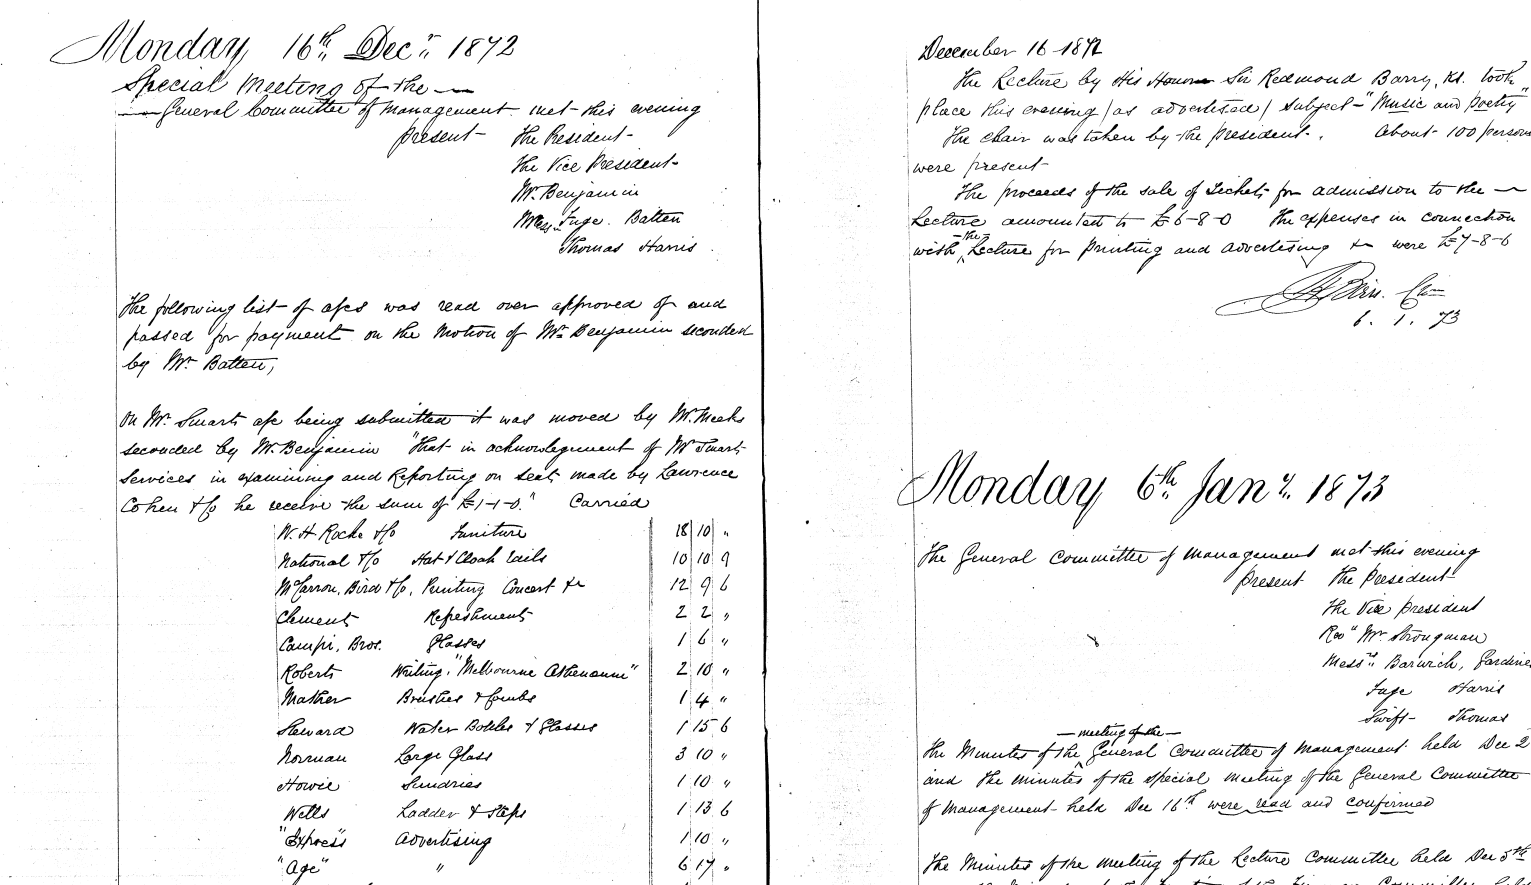 Monday 16th Decr 1872
Special Meeting of the
General Committee of Management met this evening
Present The President
The Vice President
Mr Benjamin
Messrs Fuge. Batten
Thomas Harris
The following list of a/cs was read over approved of and
passed for payment on the motion of Mr Benjamin seconded
by Mr Batten,
On Mr Smarts a/c being submitted it was moved by Mr Meeks
seconded by Mr Benjamin "That in acknowlegement of Mr Smarts
Services in examining and Reporting on seats made by Lawrence
Cohen & Co he receive the sum of £1-1-0." Carried
W. H Rocke & Co Furniture 18 10 "
National & Co Hat & Cloak rails 10 10 9
McCarron, Bird & Co, Printing Concert &c 12 9 6
Clement Refreshments 2 2 "
Campi, Bros. Glasses 1 6 "
Roberts Writing, "Melbourne Athenaeum" 2 10 "
Mather Brushes & Combs 1 4 "
Steward Water Bottles & Glasses 1 15 6
Norman Large Glass 3 10 "
Howie Sundries 1 10 "
Wells Ladder & Steps 1 13 6
"Express" Advertising 1 10 "
"Age" " 6 17 "
December 16 1872
The Lecture by His Honor Sir Redmond Barry, Kt. took
place this evening (as advertised) subject "Music and Poetry"
The chair was taken by the President. About 100 persons
were present
The proceeds of the sale of Tickets for admission to the
Lecture amounted to £6-8-0 The expenses in connection
with the Lecture for Printing and advertising &c were £7-8-6
6. 1. 73
Monday 6th Jany. 1873
The General Committee of Management met this evening
Present The President
The Vice President
Revd Mr Strongman
Messrs Barwick, Gardine
Fuge Harris
Swift Thomas
The Minutes of the meeting of the General Committee of Management held Dec 2
and the minutes of the special meeting of the General Committee
of Management held Dec 16th were read and confirmed
The Minutes of the meeting of the Lecture Committee held Dec 5th